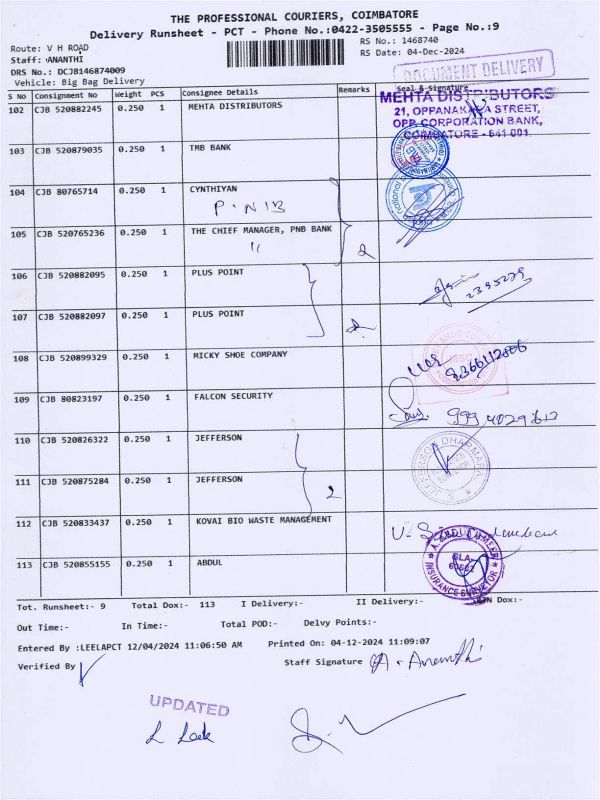 THE PROFESSIONAL COURIERS, COIMBATORE
Delivery Runsheet - PCT - Phone No.:0422-3505555 - Page No.:9
Route: V H ROAD
RS No.: 1468740
Staff: ANANTHI
RS Date: 04-Dec-2024
DRS No.: DCJB146874009
DOCUMENT DELIVERY
Vehicle: Big Bag Delivery
S No Consignment No Weight PCS Consignee Details Remarks Seal & Signature
102 CJB 520882245 0.250 1 MEHTA DISTRIBUTORS
MEHTA DISTRIBUTORS
21, OPPANAKARA STREET,
OPP. CORPORATION BANK,
COIMBATORE - 641 001.
103 CJB 520879035 0.250 1 TMB BANK
104 CJB 80765714 0.250 1 CYNTHIYAN
P.N.B
105 CJB 520765236 0.250 1 THE CHIEF MANAGER, PNB BANK
"
2
106 CJB 520882095 0.250 1 PLUS POINT
2395279
107 CJB 520882097 0.250 1 PLUS POINT
2
108 CJB 520899329 0.250 1 MICKY SHOE COMPANY
MSC
109 CJB 80823197 0.250 1 FALCON SECURITY
110 CJB 520826322 0.250 1 JEFFERSON
S. JEFFERSON DHARMARAJ
111 CJB 520875284 0.250 1 JEFFERSON
2
112 CJB 520833437 0.250 1 KOVAI BIO WASTE MANAGEMENT
113 CJB 520855155 0.250 1 ABDUL
SLA
INSURANCE SURVEYOR
Tot. Runsheet:- 9 Total Dox:- 113 I Delivery:- II Delivery:- RTN Dox:-
Out Time:- In Time:- Total POD:- Delvy Points:-
Entered By :LEELAPCT 12/04/2024 11:06:50 AM Printed On: 04-12-2024 11:09:07
Verified By
Staff Signature A. Ananthi
UPDATED